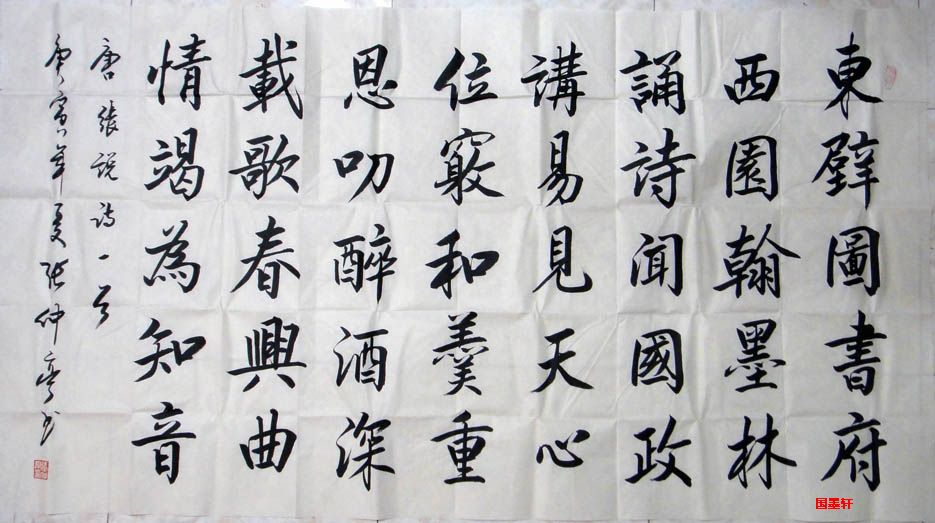 東壁圖書府
西園翰墨林
誦詩聞國政
講易見天心
位竅和羹重
恩叨醉酒深
載歌春興曲
情竭為知音
唐張説詩一首
庚寅年夏張仲亭书
国墨轩